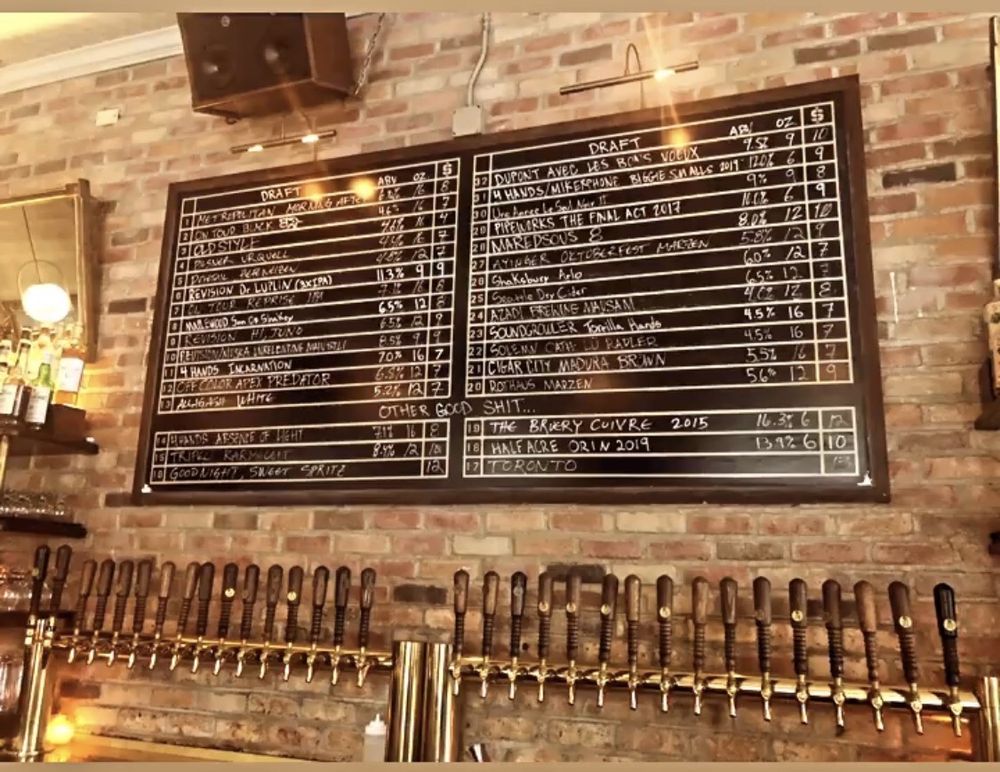 DRAFT ABV OZ $
1 METROPOLITAN MORNING AFTER 16 8
2 ON TOUR BLACK 4.6% 16 7
3 OLD STYLE 4.6% 16 4
4 PILSNER URQUELL 4.4% 16 7
5 4.8% 12 7
6 REVISION Dr LUPLIN (3XIPA) 11.3% 9 9
7 ON TOUR REPRISE 7.1% 16 8
8 MAPLEWOOD Son of Shakey 6.5% 12 8
9 REVISION HI, JUNO 6.5% 12 9
10 8.5% 9 9
11 4 HANDS INCARNATION 7.0% 16 7
12 OFF COLOR APEX PREDATOR 6.5% 12 7
13 ALLAGASH WHITE 5.2% 12 7
DRAFT ABV OZ $
32 DUPONT AVEC LES BON'S VOEUX 9.5% 9 10
31 4 HANDS/MIKERPHONE BIGGIE SMALLS 2019 12.0% 6 9
30 9% 9 8
29 PIPEWORKS THE FINAL ACT 2017 6 9
28 MAREDSOUS 8 8.0% 12 10
27 AYINGER OKTOBERFEST MARZEN 5.8% 12 9
26 Shacksbury Arlo 6.0% 12 7
25 Seattle Dry Cider 6.5% 12 7
24 AZADI BREWING 12 8
23 SOUNDGROWLER Torrilla Hands 4.5% 16 7
22 SOLEMN OATH LÜ RADLER 4.5% 16 7
21 CIGAR CITY MADURA BROWN 5.5% 16 7
20 ROTHAUS MARZEN 5.6% 12 9
OTHER GOOD SHIT...
14 4 HANDS ABSENCE OF LIGHT 7.1% 16 8
15 TRIPEL KARMELIET 8.4% 12 10
16 GOODNIGHT, SWEET SPRITZ 12
19 THE BRUERY CUIVRE 2015 16.3% 6 12
18 HALF ACRE ORIN 2019 13.9% 6 10
17 TORONTO 13